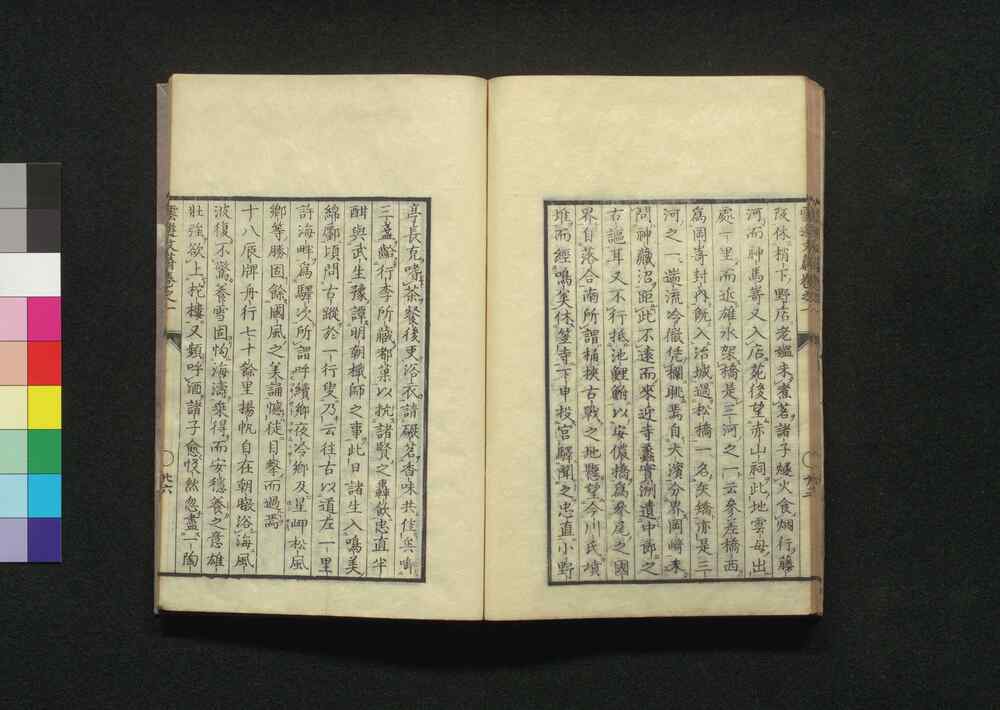 阪休梢下野店老媼来煮茗諸子鑓火食烟行藤
河而神馬嵜又入店花後望赤山祠此地雲母出
處一里而近雄水架橋是三河之一云參差橋西
為岡嵜封内既入治城過松橋一名矢矯亦是三
河之一遄流冷徹凭欄眺焉自大濱分界岡崎來
問神藏沼距此不遠而來近寺蠹實淵遺中郎之
古謳耳又不行抵池鯉鮒以安儂橋為參尾之國
界自落合南所謂桶挾古戰之地懸望今川氏墳
堆而經鳴矣休笠寺下申投宮驛聞之忠直小野
亭長充嗜茶餐後更浴衣請碾茗香味共佳與嘶
三盞行李所藏都集以抗諸賢之轟飲忠直半
酣與武生豫譚明朝檝師之事此日諸生入鳴美
綿鄽頃問古蹤於一行叟乃云往古以道左一里
許海畔為驛次所謂呼續鄉夜冷鄉及星岬松風
鄉等勝固餘國風之美誦憾徒目擊而過焉
十八辰牌舟行七十餘里揚帆自在朝暾浴海風
波復不驚養雪固恟海濤乘得而安穩養之意雄
壯強欲上柁樓又頻呼酒諸子愈悅然忽盡一陶
雲遊文蒨卷之一
廿六